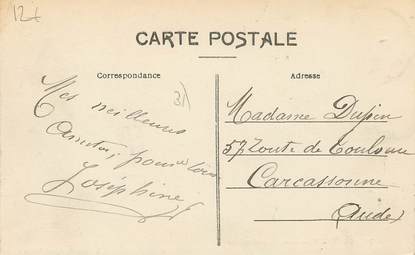 12
CARTE POSTALE
Correspondance
Adresse
Mes meilleures
amitiés pour tous
Joséphine
Madame Dupin
57 Route de Toulouse
Carcassonne
(Aude)